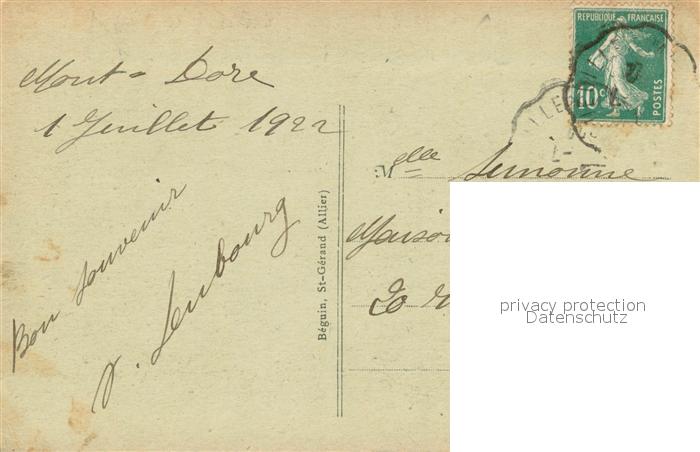 Mont-Dore
1 Juillet 1922
Bon souvenir
Béguin, St-Gérand (Allier)
REPUBLIQUE FRANÇAISE
10c
POSTES
Mlle
Maison
20
privacy protection
Datenschutz